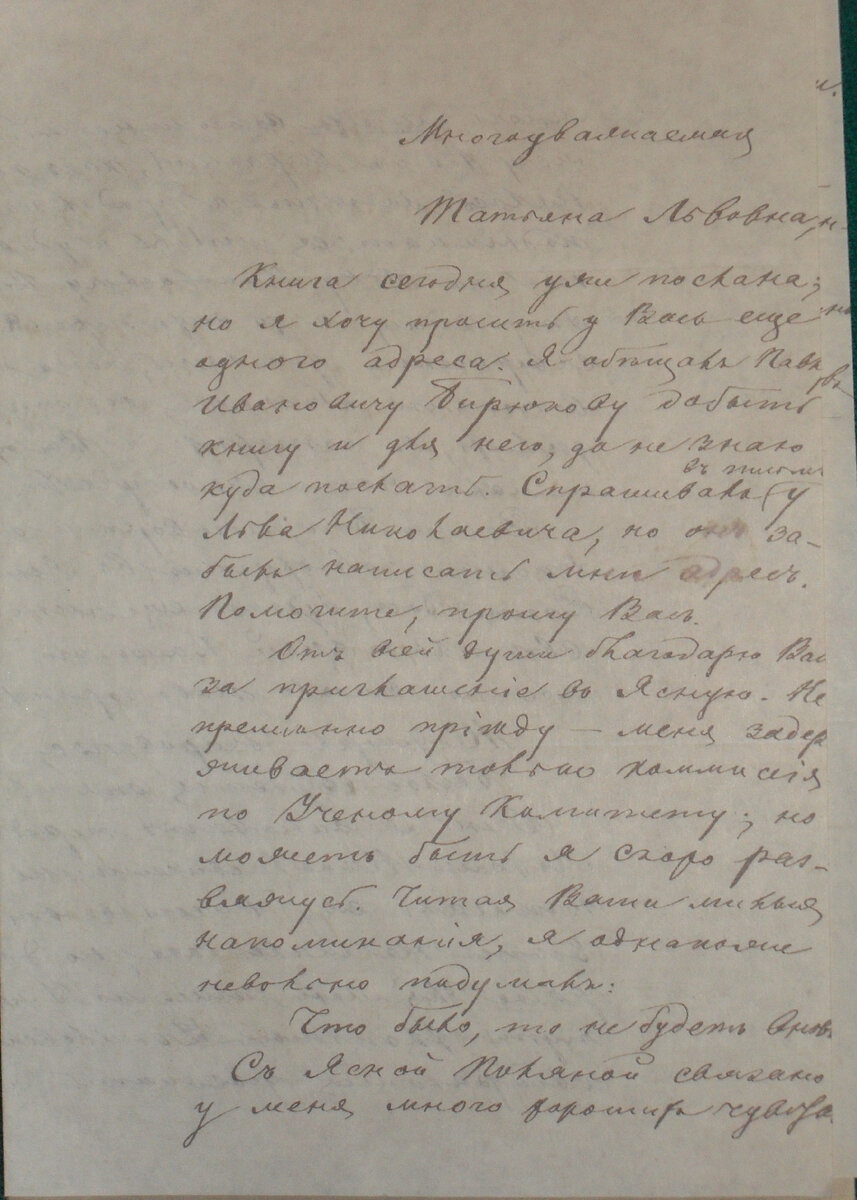 Многоуважаемая
Татьяна Львовна,
Книга сегодня уже послана;
но я хочу просить у Васъ еще
одного адреса. Я обѣщалъ Павлу
Ивановичу Бирюкову добыть
книгу и для него, да не знаю
въ письмѣ
куда послать. Спрашивалъ у
Льва Николаевича, но онъ за-
былъ написать мнѣ адресъ.
Помогите, прошу Васъ.
Отъ всей души благодарю Вас
за приглашеніе въ Ясную. Не
премѣнно пріѣду — меня задер
живаетъ только коммисія
по Ученому Комитету; но
можетъ быть я скоро раз-
вяжусь. Читая Ваши милыя
напоминанія, я однакоже
невольно подумалъ:
Что было, то не будетъ вновь
Съ Ясной Поляной связано
у меня много хорошихъ чувствъ